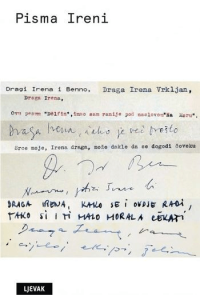 Pisma Ireni
Dragi Irena i Benno,
Draga Irena Vrkljan,
Draga Irena,
Ovu pesmu "Delfin", imao sam ranije pod naslovom "Na Moru",
Draga Irena, iako je već prošlo
Srce moje, Irena draga, može dakle da se dogodi čoveku
DRAGA IRENA, KAKO SE I OVDJE RADI,
TAKO SI I TI MALO MORALA ČEKATI
Draga Irena,
LJEVAK